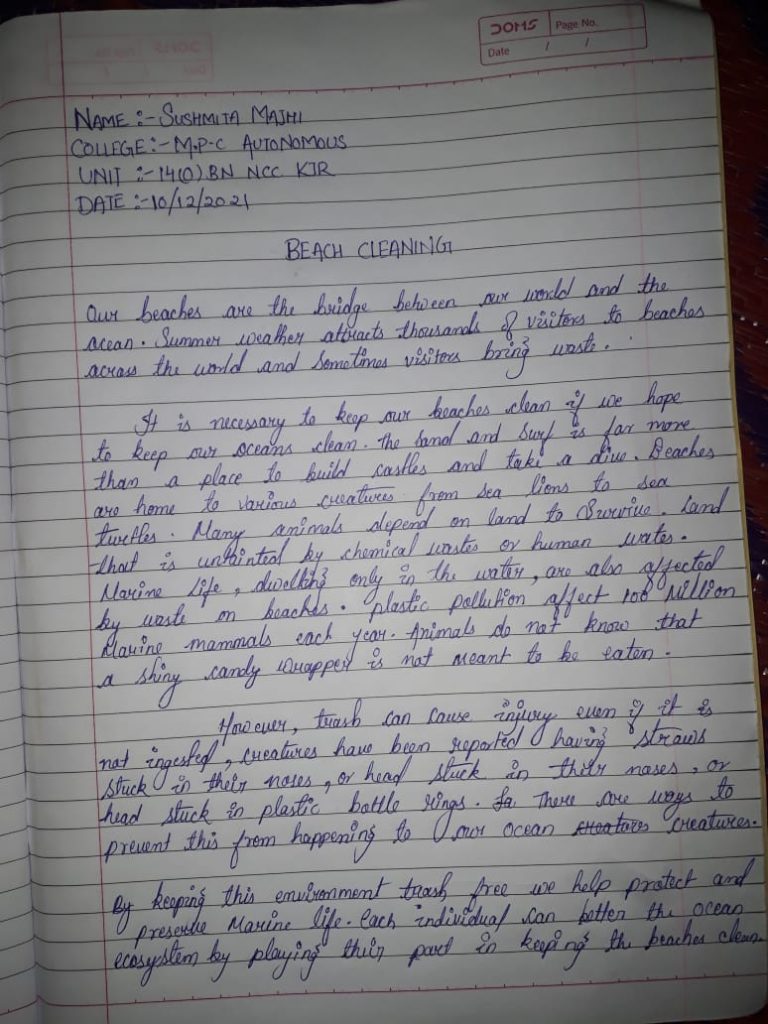 DOMS
Page No.
Date / /
NAME :- SUSHMITA MAJHI
COLLEGE :- M.P.C AUTONOMOUS
UNIT :- 14(O) BN NCC KJR
DATE :- 10/12/2021
BEACH CLEANING
Our beaches are the bridge between our world and the
ocean. Summer weather attracts thousands of visitors to beaches
across the world and sometimes visitors bring waste.
It is necessary to keep our beaches clean if we hope
to keep our oceans clean. The sand and surf is far more
than a place to build castles and take a dive. Beaches
are home to various creatures from sea lions to sea
turtles. Many animals depend on land to survive. Land
that is untainted by chemical wastes or human wates.
Marine life, dwelling only in the water, are also affected
by waste on beaches. plastic pollution affect 100 Million
Marine mammals each year. Animals do not know that
a shiny candy wrapper is not meant to be eaten.
However, trash can cause injury even if it is
not ingested, creatures have been reported having straws
stuck in their noses, or head stuck in their noses, or
head stuck in plastic bottle rings. There are ways to
prevent this from happening to our ocean creatures creatures.
By keeping this environment trash free we help protect and
preserve Marine life. Each individual can better the ocean
ecosystem by playing their part in keeping the beaches clean.